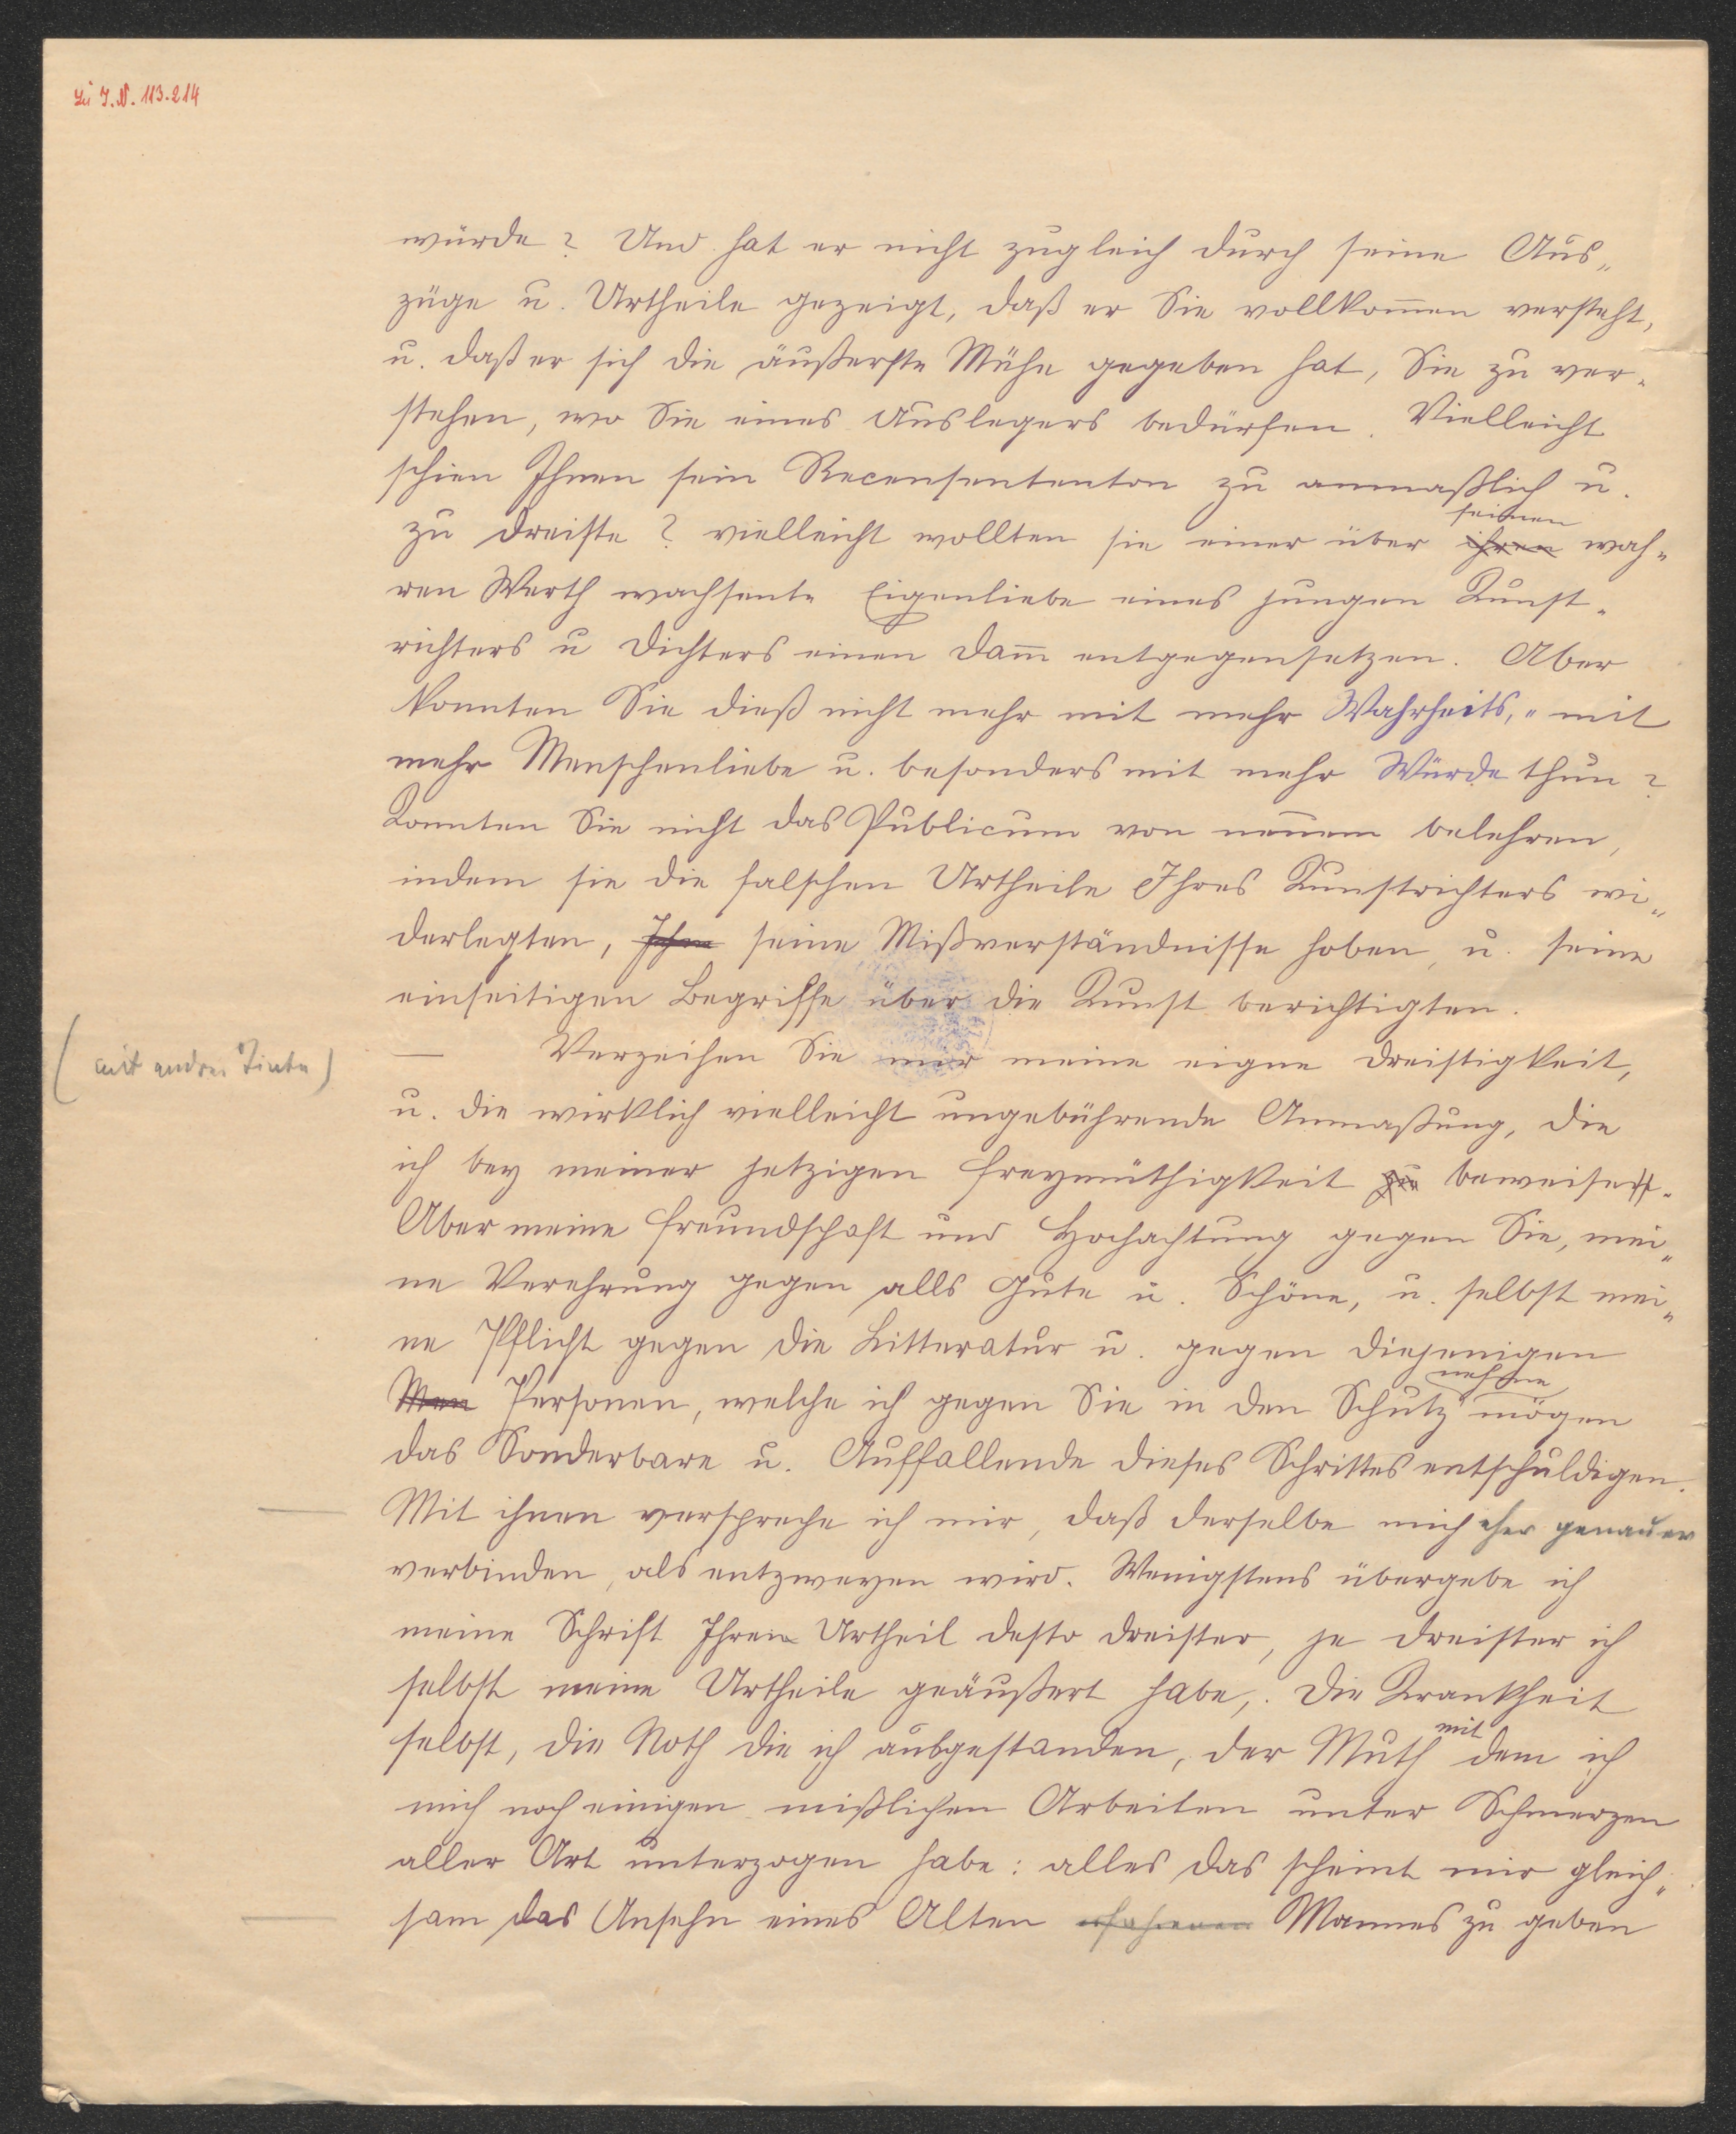 Zu I.N. 113.214
würde? Und hat er nicht zugleich durch seine Aus„
züge u. Urtheile gezeigt, daß er Sie vollkom̅en versteht,
u. daß er sich die äußerste Mühe gegeben hat, Sie zu ver„
stehen, wo Sie eines Auslegers bedürfen. Vielleicht
schien Ihnen sein Recensententon zu anmaßlich u.
seinen
zu dreiste? vielleicht wollten sie einer über ihren wah„
ren Werth wachsente Eigenliebe eines jungen Kunst„
richters u Dichters einen Dam̅ entgegensetzen. Aber
konnten Sie dieß nicht mehr mit mehr Wahrheits,„ mit
mehr Menschenliebe u. besonders mit mehr Würde thun?
Konnten Sie nicht das Publicum von neuem belehren,
indem sie die falschen Urtheile Ihres Kunstrichters wi„
derlegten, Ihre seine Mißverständnisse hoben, u. seine
einseitigen Begriffe über die Kunst berichtigten.
(mit andrer Tinte)
— Verzeihen Sie mir meine eigne Dreistigkeit,
u. die wirklich vielleicht ungebührende Anmaßung, die
ich bey meiner jetzigen Freymüthigkeit zu beweisen.
Aber meine Freundschaft und Hochachtung gegen Sie, mei„
ne Verehrung gegen alls Gute u. Schöne, u. selbst mei„
ne Pflicht gegen die Litteratur u. gegen diejenigen
nehme
Men Personen, welche ich gegen Sie in den Schutz mögen
das Sonderbare u. Auffallende dieses Schrittes entschuldigen.
— Mit ihnen verspreche ich mir, daß derselbe mich eher genauer
verbinden, als entzweyen wird. Wenigstens übergebe ich
meine Schrift Ihrem Urtheil desto dreister, je dreister ich
selbst meine Urtheile geäußert habe,. Die Krankheit
mit
selbst, die Noth die ich ausgestanden, der Muth dem ich
mich noch einigen mißlichen Arbeiten unter Schmerzen
aller Art unterzogen habe: alles das scheint mir gleich„
— sam das Ansehn eines Alten erfahrenen Mannes zu geben